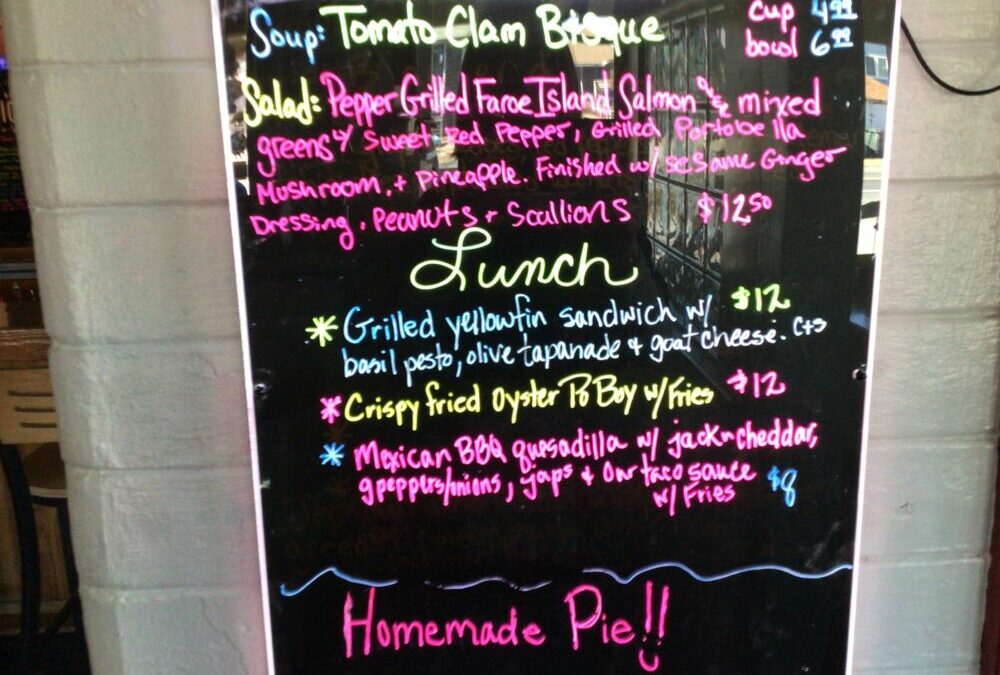 Soup: Tomato Clam Bisque cup 4.99
bowl 6.99
Salad: Pepper Grilled Faroe Island Salmon over mixed
greens w/ Sweet Red Pepper, Grilled Portobella
Mushroom, + Pineapple. Finished w/ sesame Ginger
Dressing, Peanuts + Scallions $12.50
Lunch
* Grilled yellowfin sandwich w/ $12
basil pesto, olive tapanade & goat cheese. C+S
* Crispy fried oyster Po Boy w/ Fries $12
* Mexican BBQ quesadilla w/ jack n cheddar,
gpeppers/onions, japs & our taco sauce
w/ Fries $8
Homemade Pie!!